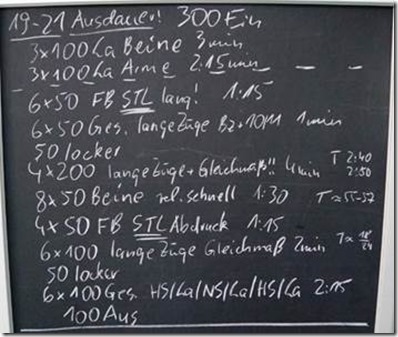 19-21 Ausdauer! 300 Ein
3x100 La Beine 3min
3x100 La Arme 2:15min
6x50 FB STL lang! 1:15
6x50 Ges. lange Züge 1min
50 locker
4x200 lange Züge + Gleichmaß!! 4min T 2:40
2:50
8x50 Beine rel. schnell 1:30 T≈55-57
4x50 FB STL Abdruck 1:15
6x100 lange Züge Gleichmaß 2min T≈
50 locker
6x100 Ges. HS/La/NS/La/HS/La 2:15
100 Aus